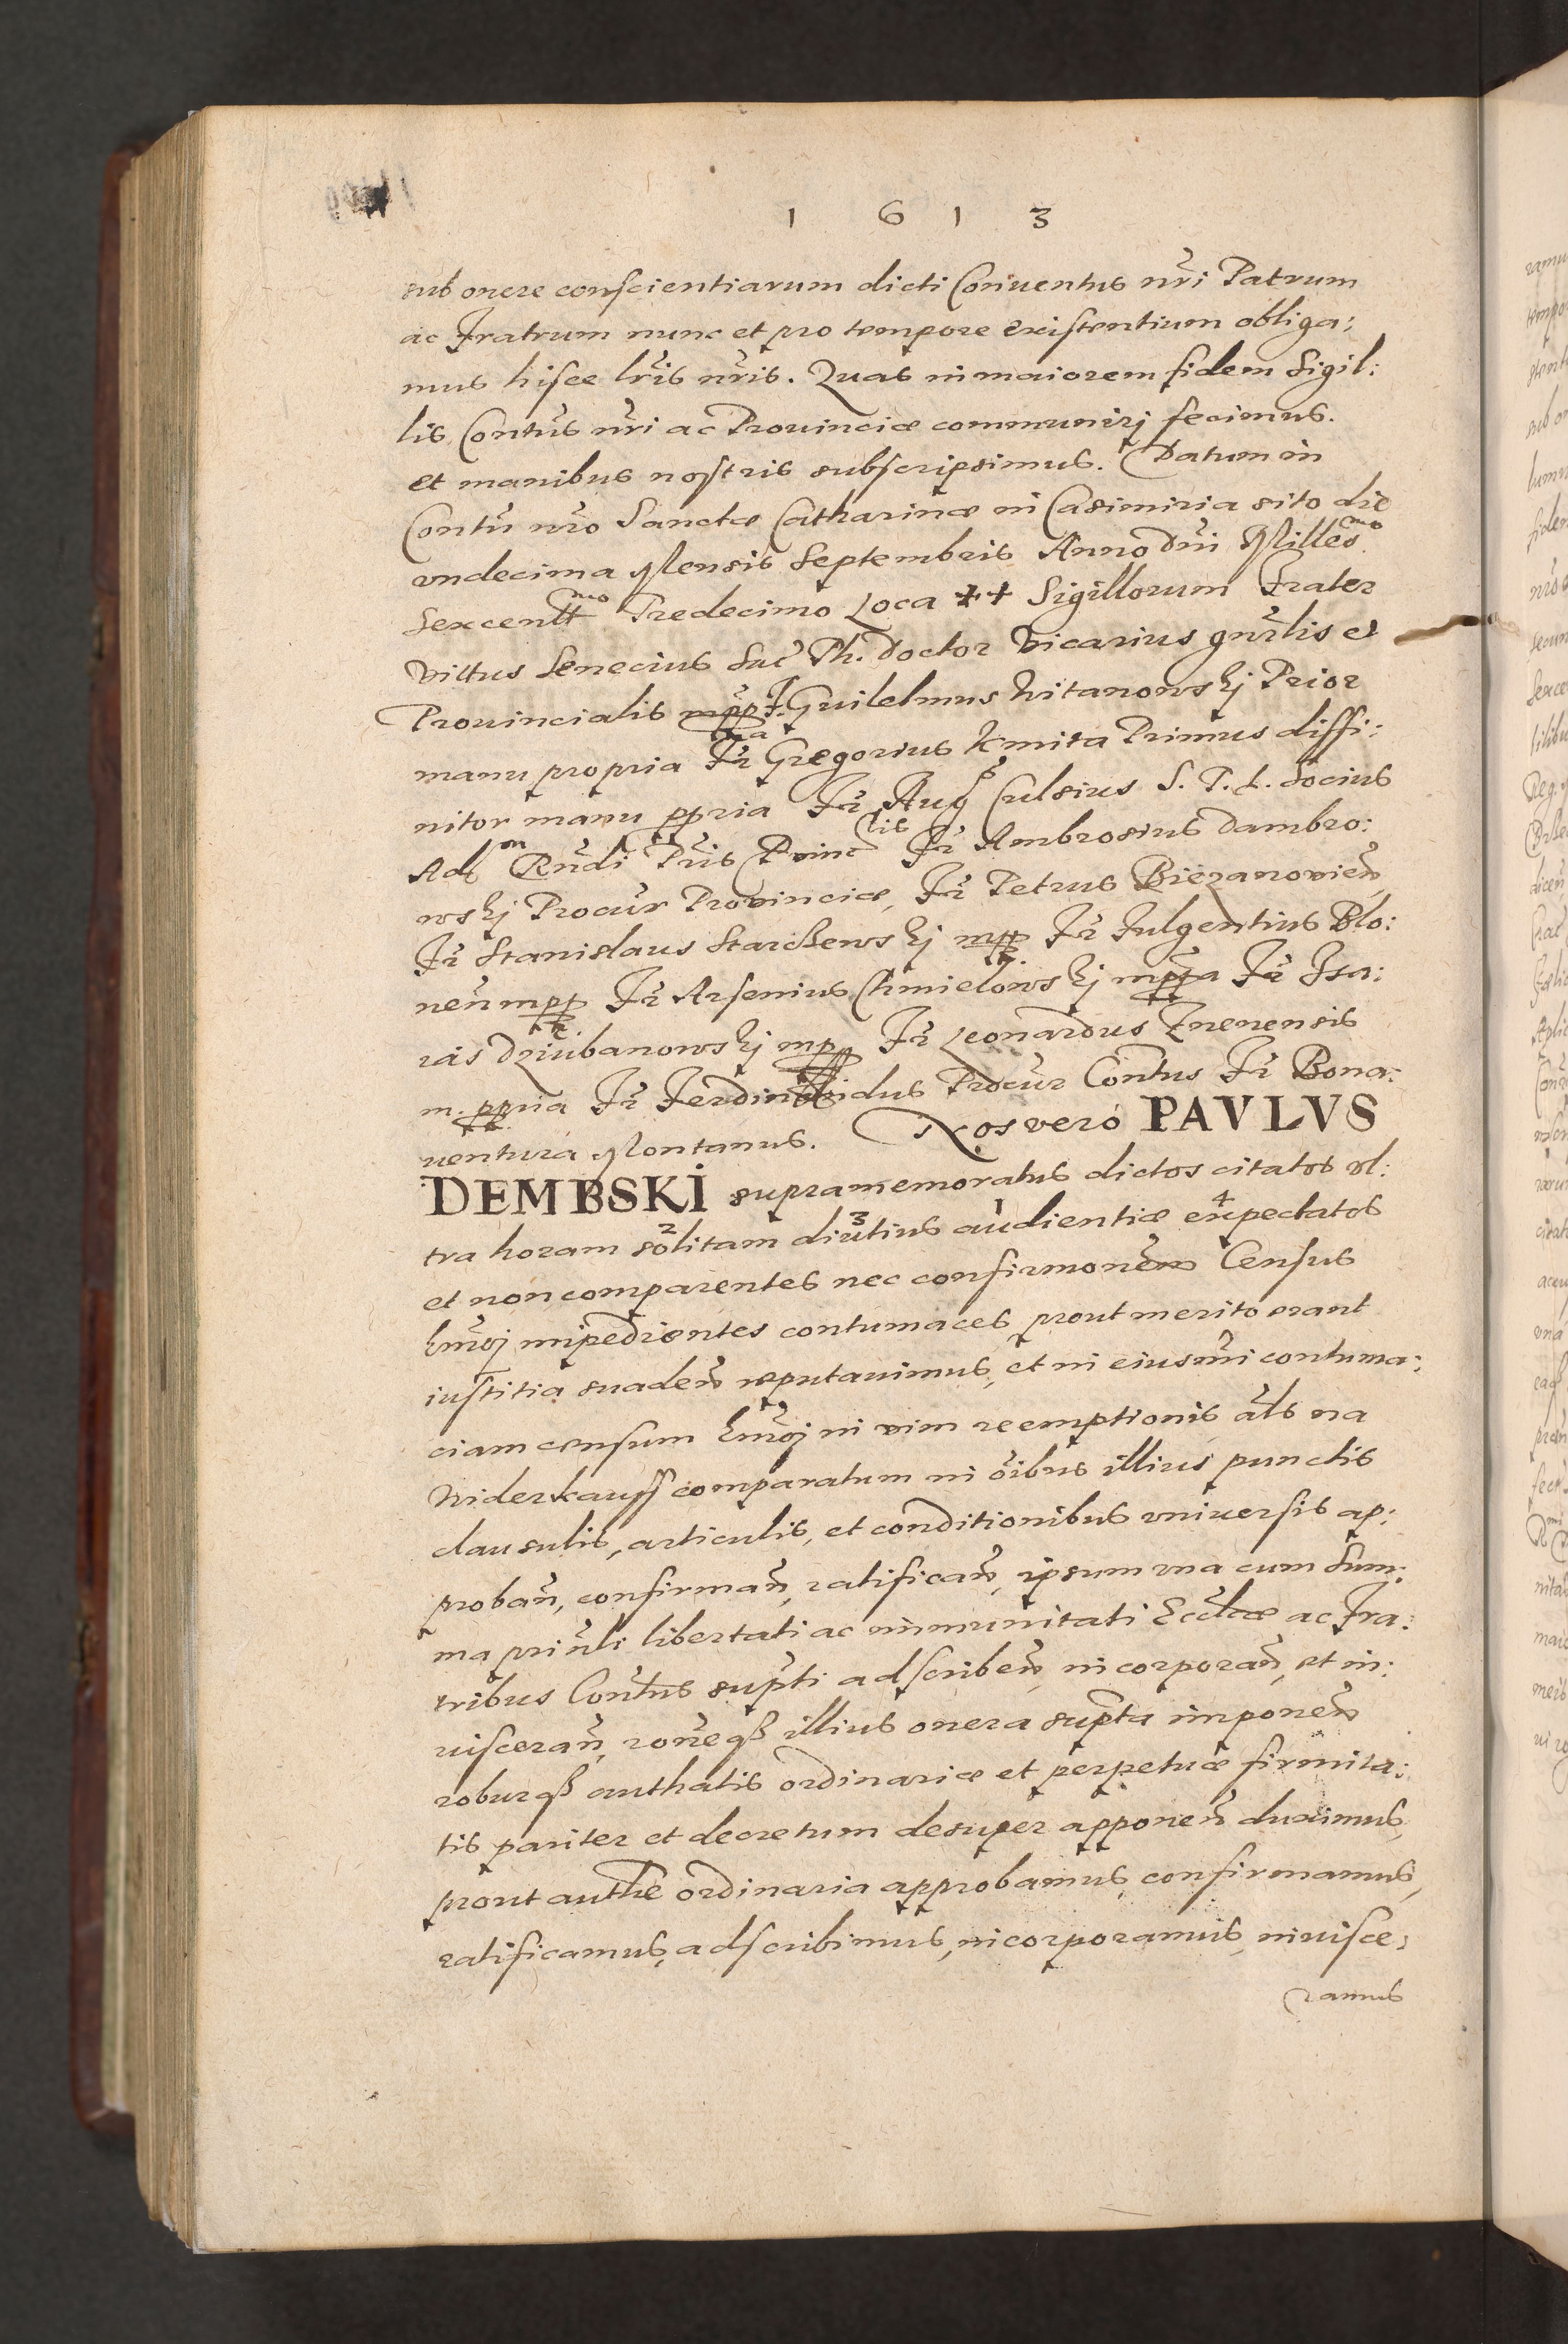 1 6 1 3
sub onere conscientiarum dicti Conuentus nr̃i Patrum
ac Fratrum nunc et pro tempore existentium obliga:
mus hisce lr̃is nr̃is. Quas in maiorem fidem Sigil:
lis Contũs nr̃i ac Prouinciæ communirj fecimus.
et manibus nostris subscripsimus. Datum in
Contũ nr̃o Sanctæ Catharinæ in Casimiria sito die
vndecima Mensis Septembris Anno dñi Milleõ mo
Sexcentt mo Tredecimo Loca ++ Sigillorum Frater
Vittus Senecius Sac̃ Th. Doctor Vicarius gnr̃lis et
Prouincialis mpp F. Guilelmus Witanowskj Prior
manu propria Fr̃ Gregorius Kmita Primus diffi:
nitor manu ppria Fr̃ Aug Culsius S. P. L. Socius
Ad Rñdi Pr̃is Prĩnc lis Fr̃ Ambrosius Dambro:
wskj Procur̃ Prouinciæ, Fr̃ Petrus Biezanouien̄,
Fr̃ Stanislaus Starchewskj mpp Fr̃ Fulgentius Blo:
nen̄ mpp Fr̃ Arsenius Chmielowskj mppa Fr̃ Isa:
ias Dziubanowskj mpp Fr̃ Leonardus Znenensis
m. ppria Fr̃ Ferdin idus Procur̃ Contũs Fr̃ Bona:
uentura Montanus. Nos veró PAVLVS
DEMBSKI supramemoratus dictos citatos vl:
tra horam 2 solitam 3 diutius 1 audientiæ 4 expectatos
et non comparentes nec confirmonem̃ Census
hmõj impedientes contumaces, prout merito erant
iustitia suaden̄ reputauimus, et in eiusm̃i contuma:
ciam censum hmõj in vim reemptionis al̃s na
Widerkauff comparatum in oĩbus illius punctis
clausulis, articulis, et conditionibus vniuersis ap:
proban̄, confirman̄, ratifican̄, ipsum vna cum Sum:
ma prinl̃i libertati ac immunitati Eccl̃iæ ac Fra:
tribus Contũs suptĩ adscriben̄, incorporan̄, et in:
visceran̄, ronẽqß illius onera suptã imponen̄
roburqß authatis ordinariæ et perpetuæ firmita:
tis pariter et decretum desuper apponen̄ duximus,
prout authẽ ordinaria approbamus, confirmamus,
ratificamus, adscribimus, incorporamus, inuisce:
ramus